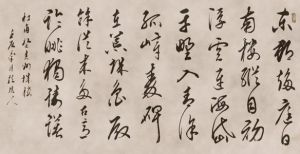 東郡趨庭日
南樓縱目初
浮雲連海岱
平野入青徐
孤嶂秦碑
在荒城魯殿
餘從來多古意
臨眺獨躊躇
杜甫登兖州城樓